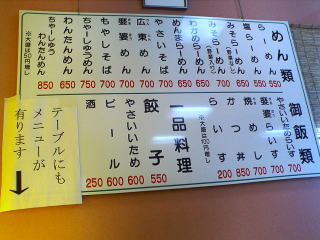 めん類
らーめん 550
塩らーめん 550
みそらーめん 650
みそらーめん 700
わかめらーめん 700
めんまらーめん 650
やさいそば 700
広東めん 700
婆婆めん 700
もやしそば 700
ちゃーしゅうめん 750
わんたんめん 650
ちゃーしゅう
わんたんめん 850
※大盛は50円増し
御飯類
やさいいためらいす 700
婆婆らいす 700
焼めし 700
かつ丼 850
らいす 200
※大盛は100円増し
一品料理
餃子 550
やさいいため 600
ビール 600
酒 250
テーブルにも
メニューが
有ります
↓